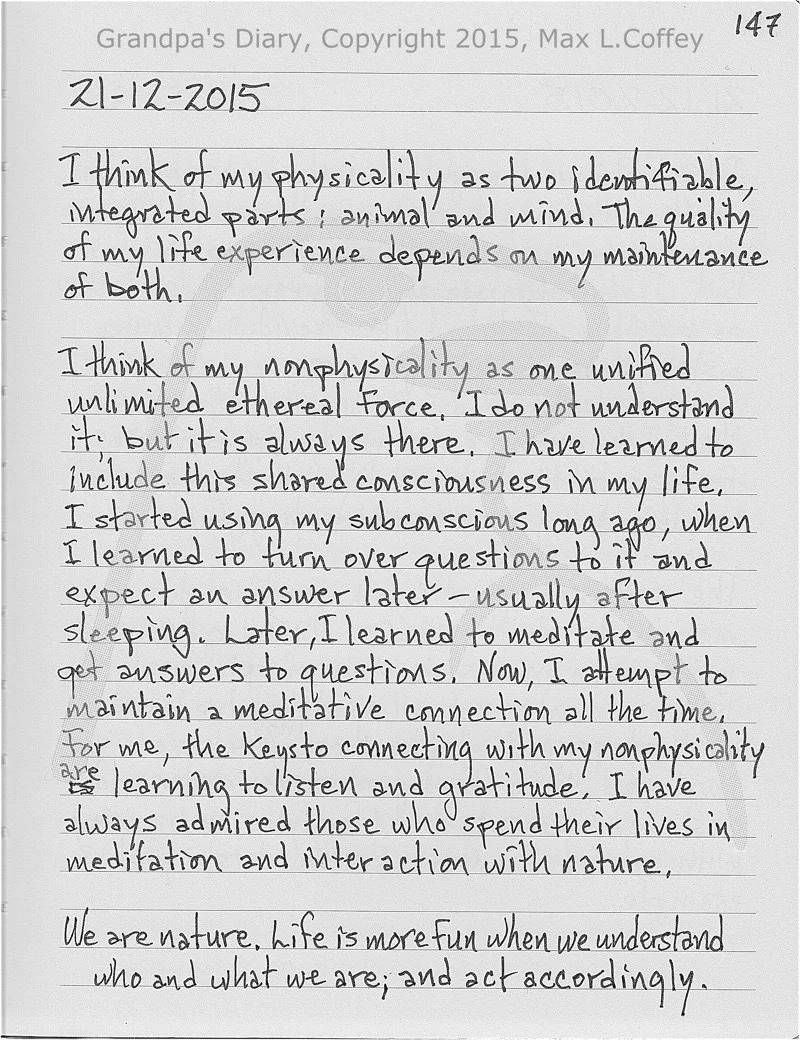 147
Grandpa's Diary, Copyright 2015, Max L.Coffey
21-12-2015
I think of my physicality as two identifiable,
integrated parts: animal and mind. The quality
of my life experience depends on my maintenance
of both.
I think of my nonphysicality as one unified
unlimited ethereal force. I do not understand
it; but it is always there. I have learned to
include this shared consciousness in my life.
I started using my subconscious long ago, when
I learned to turn over questions to it and
expect an answer later - usually after
sleeping. Later, I learned to meditate and
get answers to questions. Now, I attempt to
maintain a meditative connection all the time.
For me, the keys to connecting with my nonphysicality
are learning to listen and gratitude. I have
always admired those who spend their lives in
meditation and interaction with nature.
We are nature. Life is more fun when we understand
who and what we are; and act accordingly.